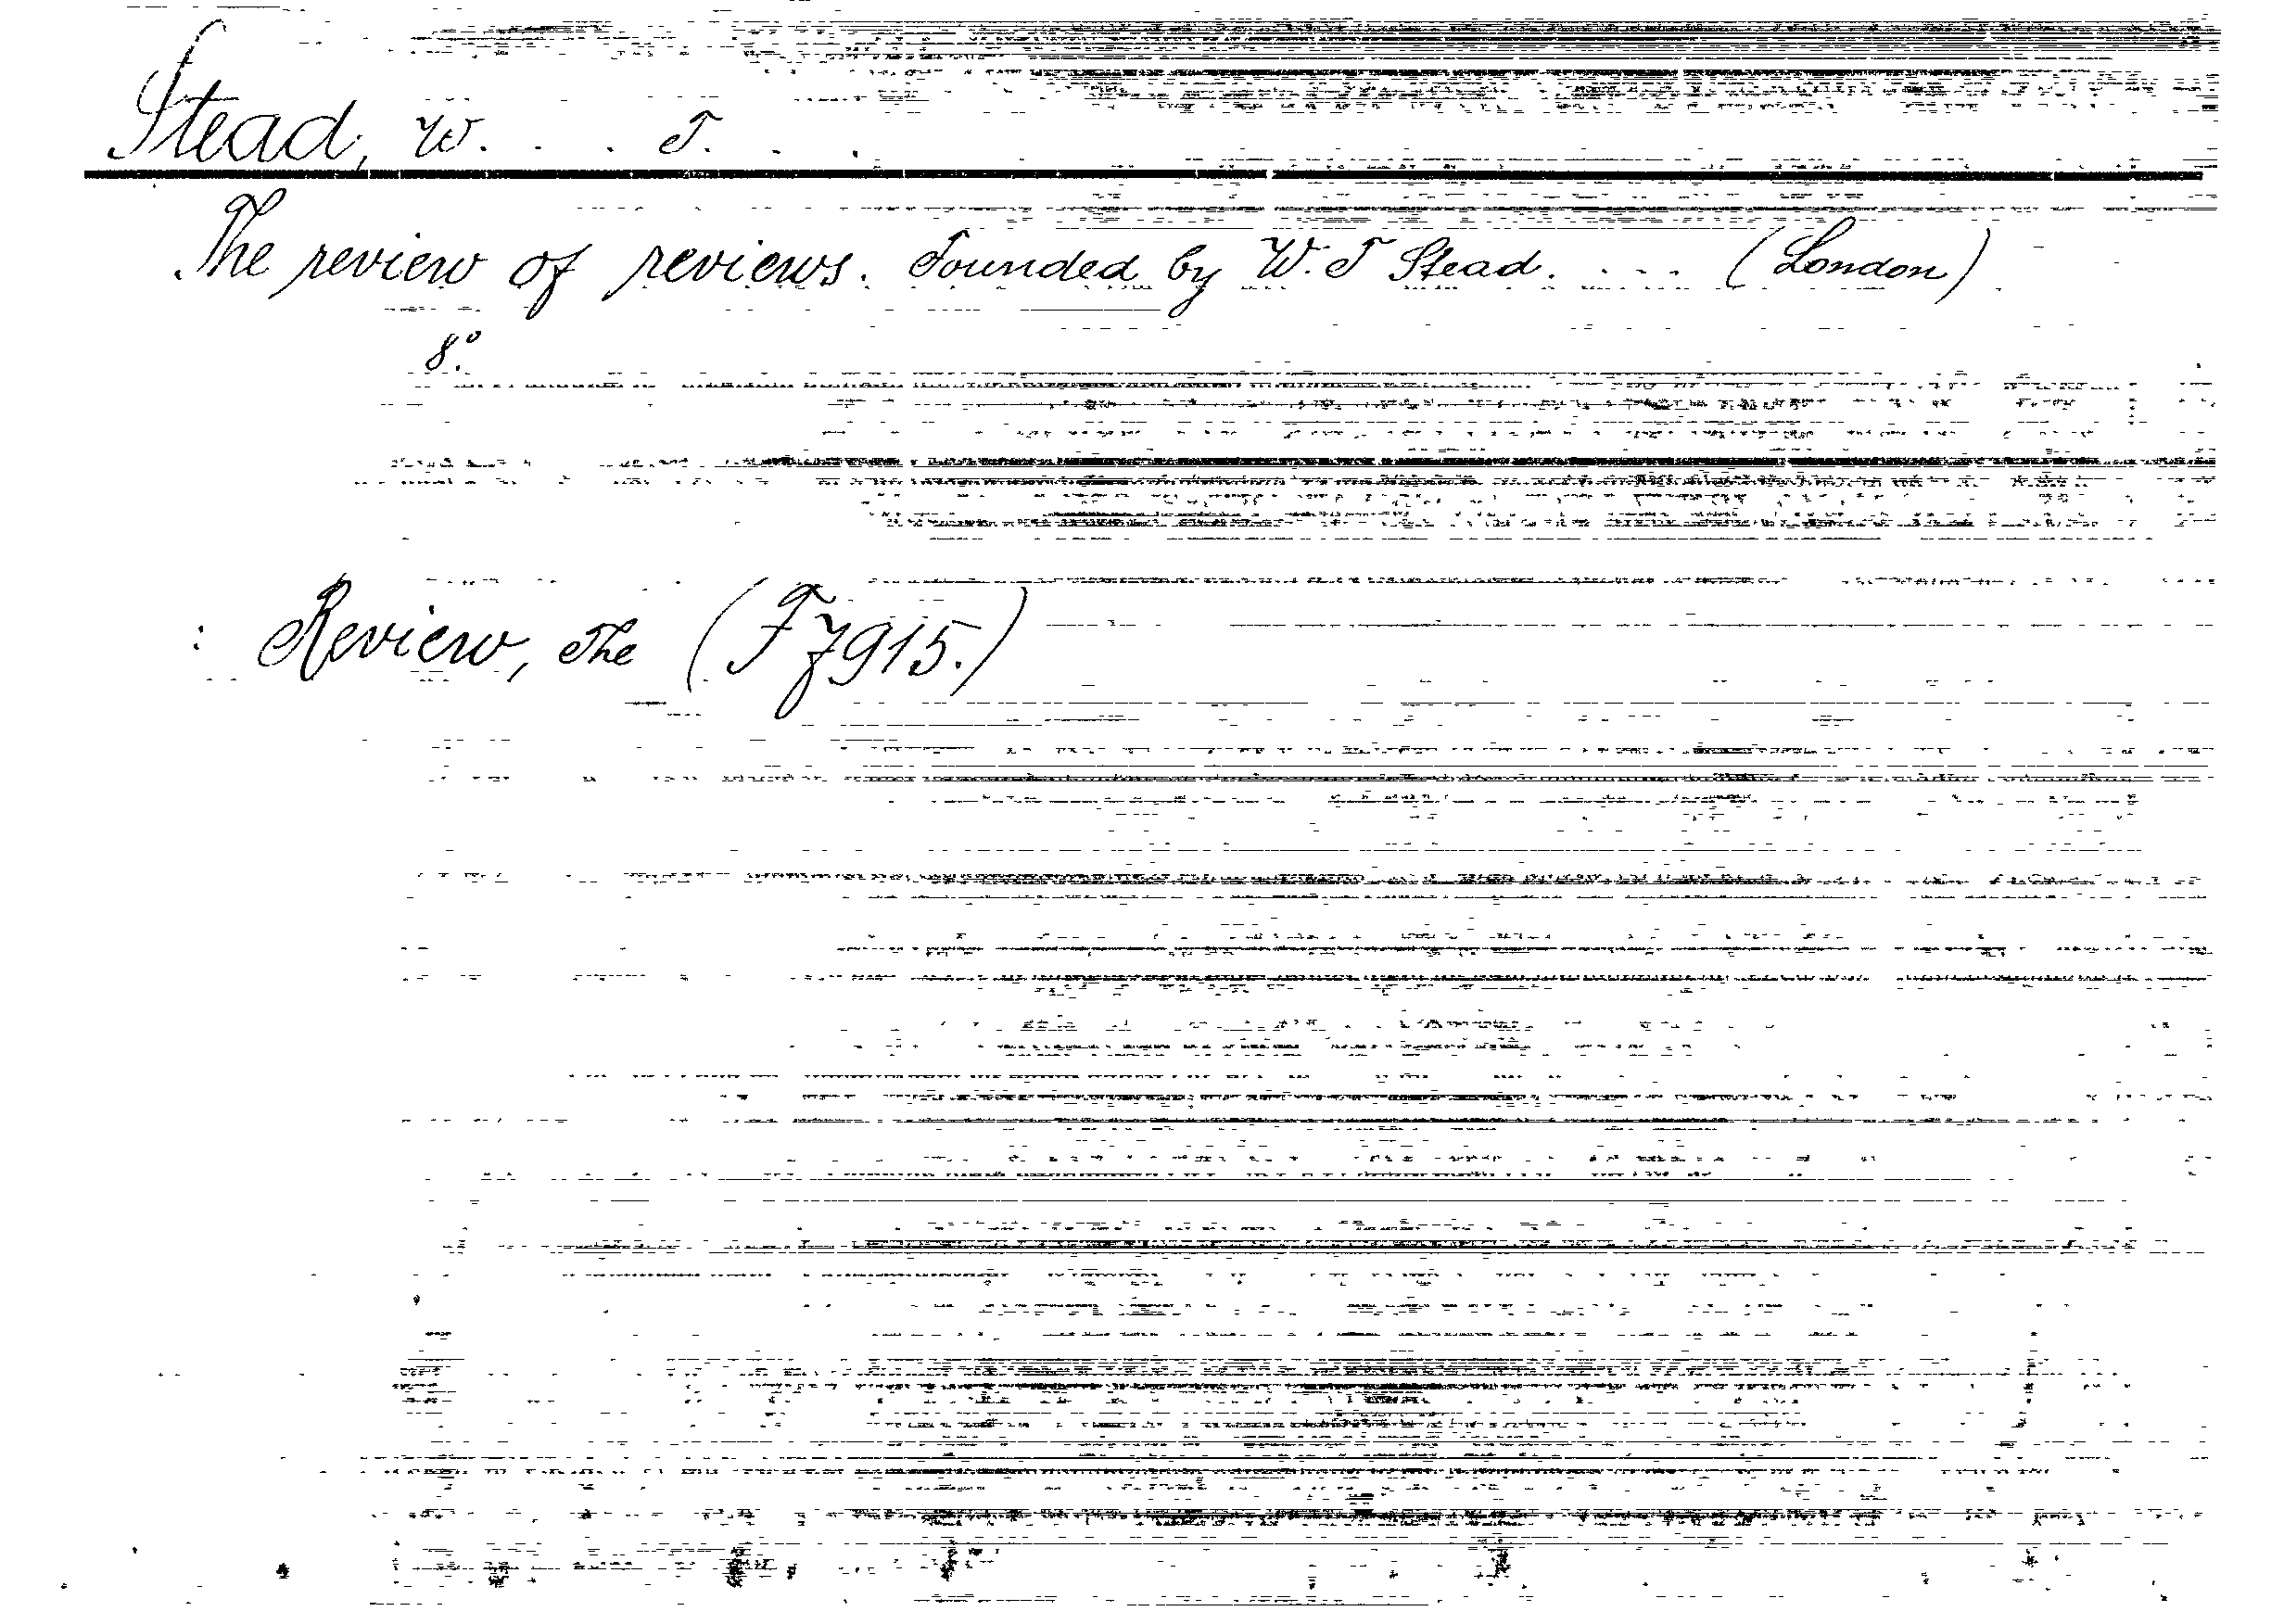 Stead, W. . . T. . .
The review of reviews. Founded by W. T Stead. . . . (London)
8.º
: Review, the (Fz915.)